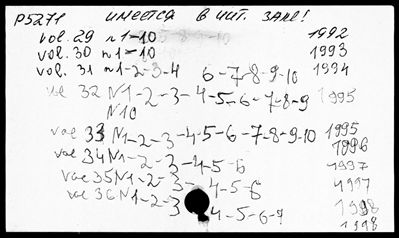 P5271 ИМЕЕТСЯ В ЧИТ. ЗАЛЕ!
vol. 29 n 1-10 1992
vol. 30 n 1-10 1993
vol. 31 n 1-2-3-4 6-7-8-9-10 1994
vol 32 N1-2-3-4-5-6-7-8-9 1995
N10
vol 33 N1-2-3-4-5-6-7-8-9-10 1995
1996
vol 34 N1-2-3-4-5-6 1997
vol 35 N1-2-3-4-5-6 1997
vol 36 N1-2-3 4-5-6-7 1998
1998